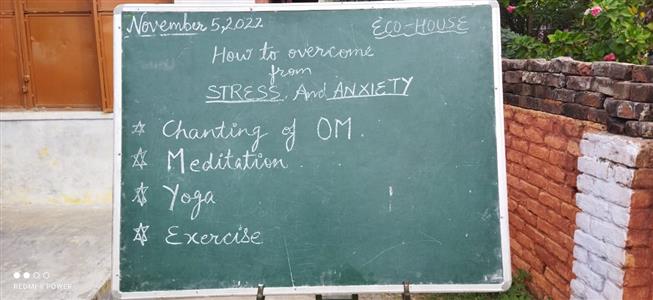 November 5, 2022
ECO-HOUSE
How to overcome
from
STRESS And ANXIETY
☆ Chanting of OM.
☆ Meditation
☆ Yoga
☆ Exercise
REDMI 8 POWER